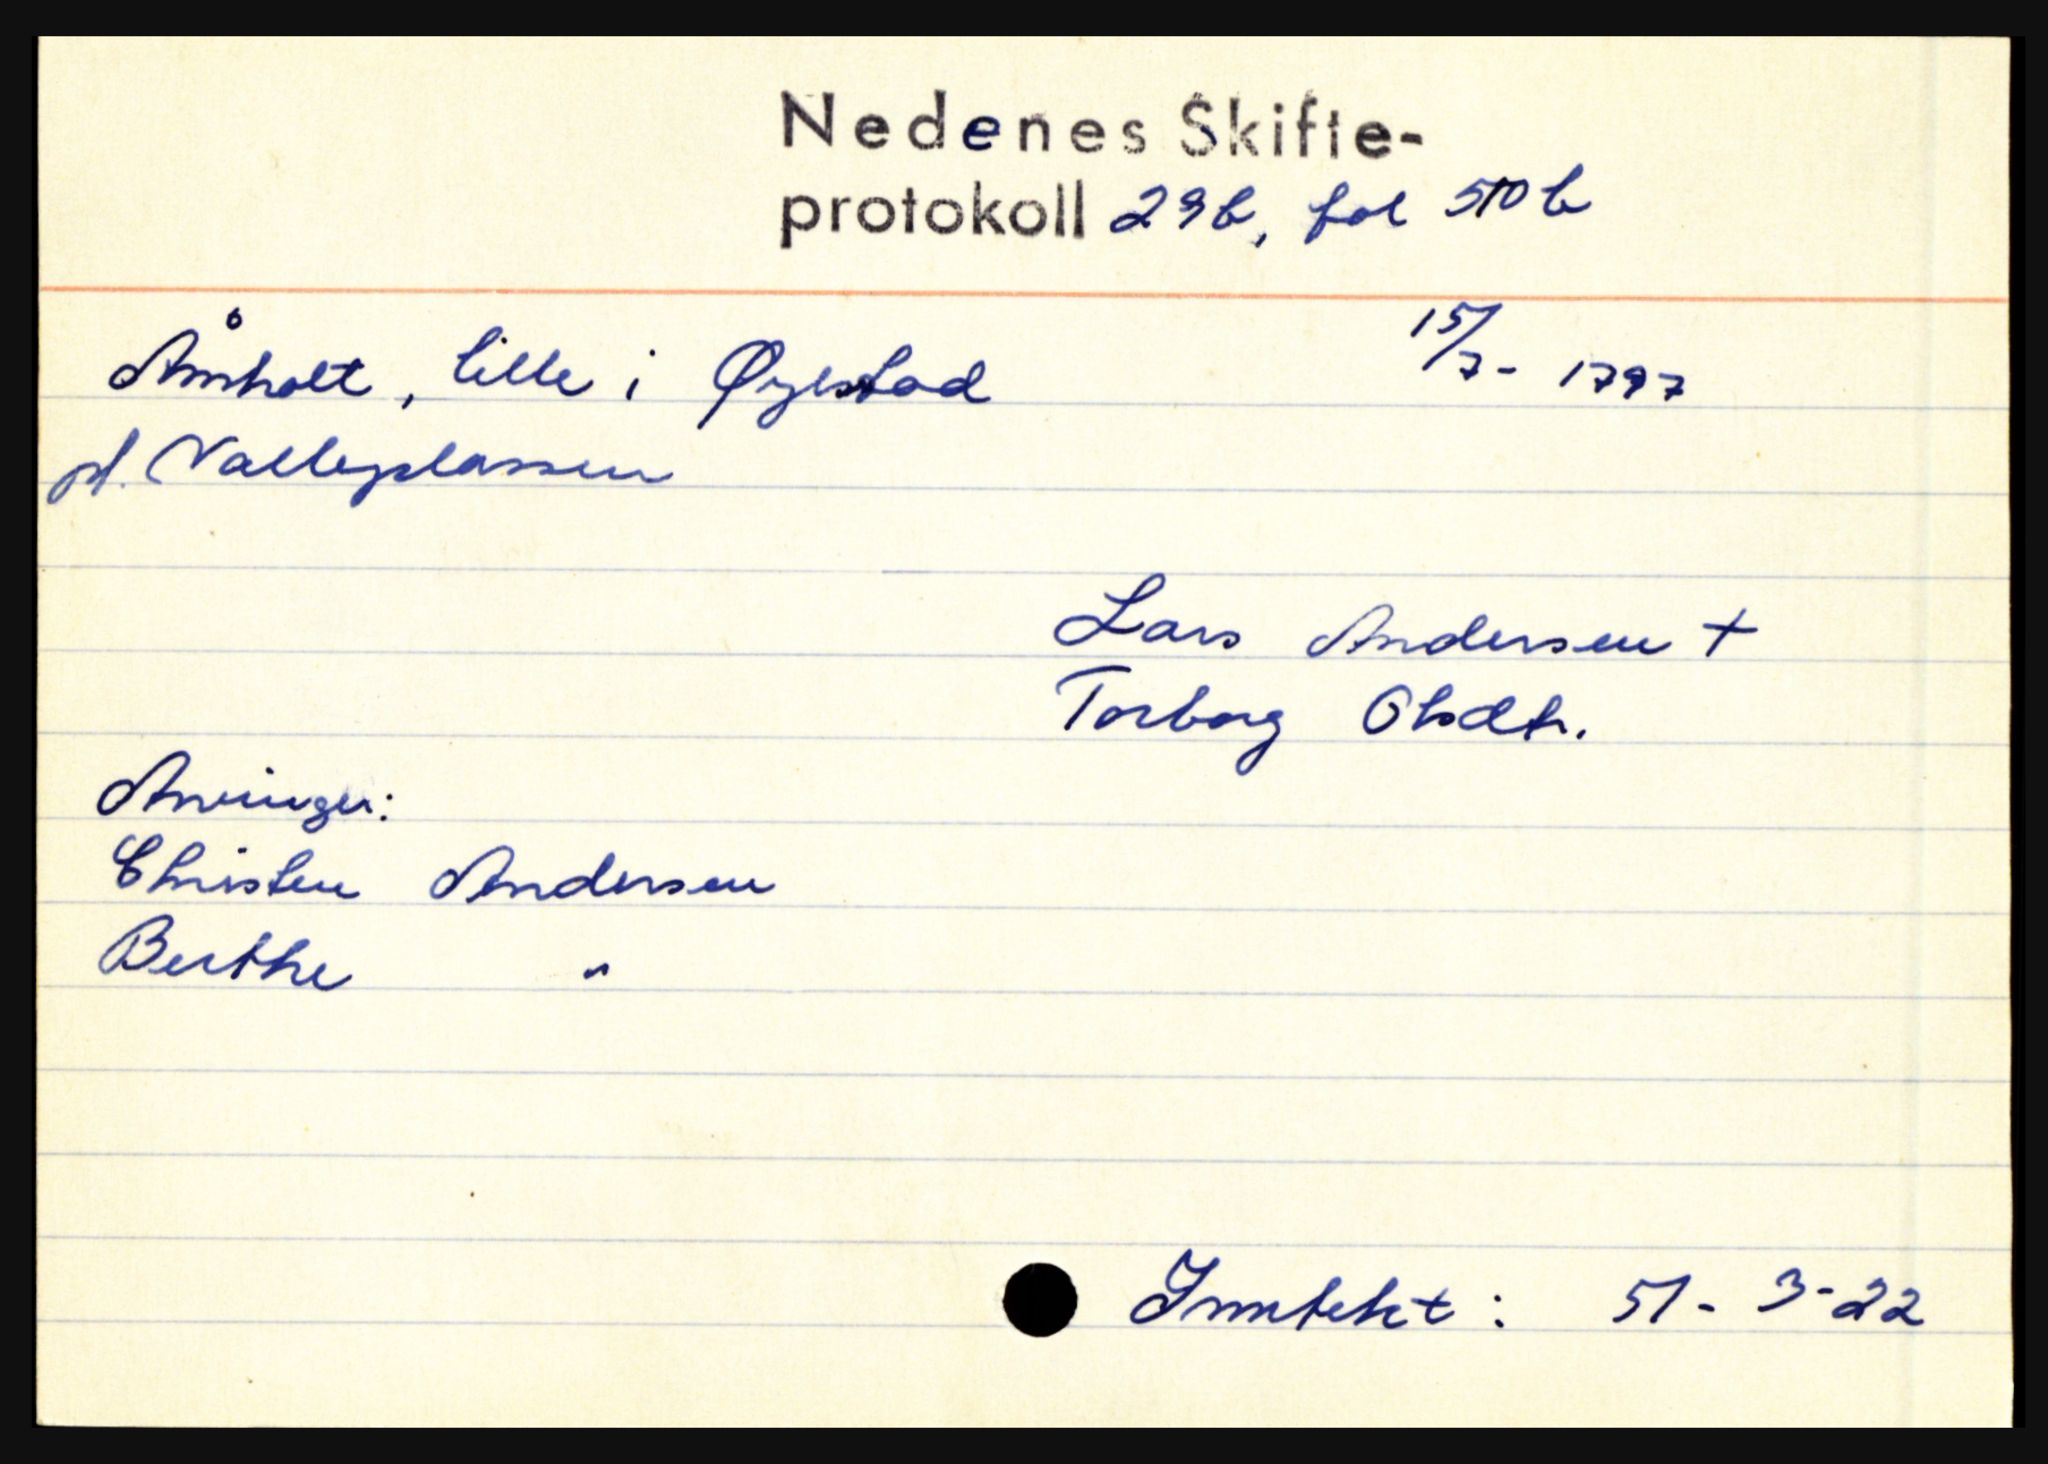 Nedenes Skifte-
protokoll 29b, fol 510b
Åmholt, lille i Øyestad 15/7- 1797
pl. Valleplassen
Lars Andersen +
Torborg Olsdtr.
Arvinger:
Christen Andersen
Berthe "
Inntekt: 51- 3-22